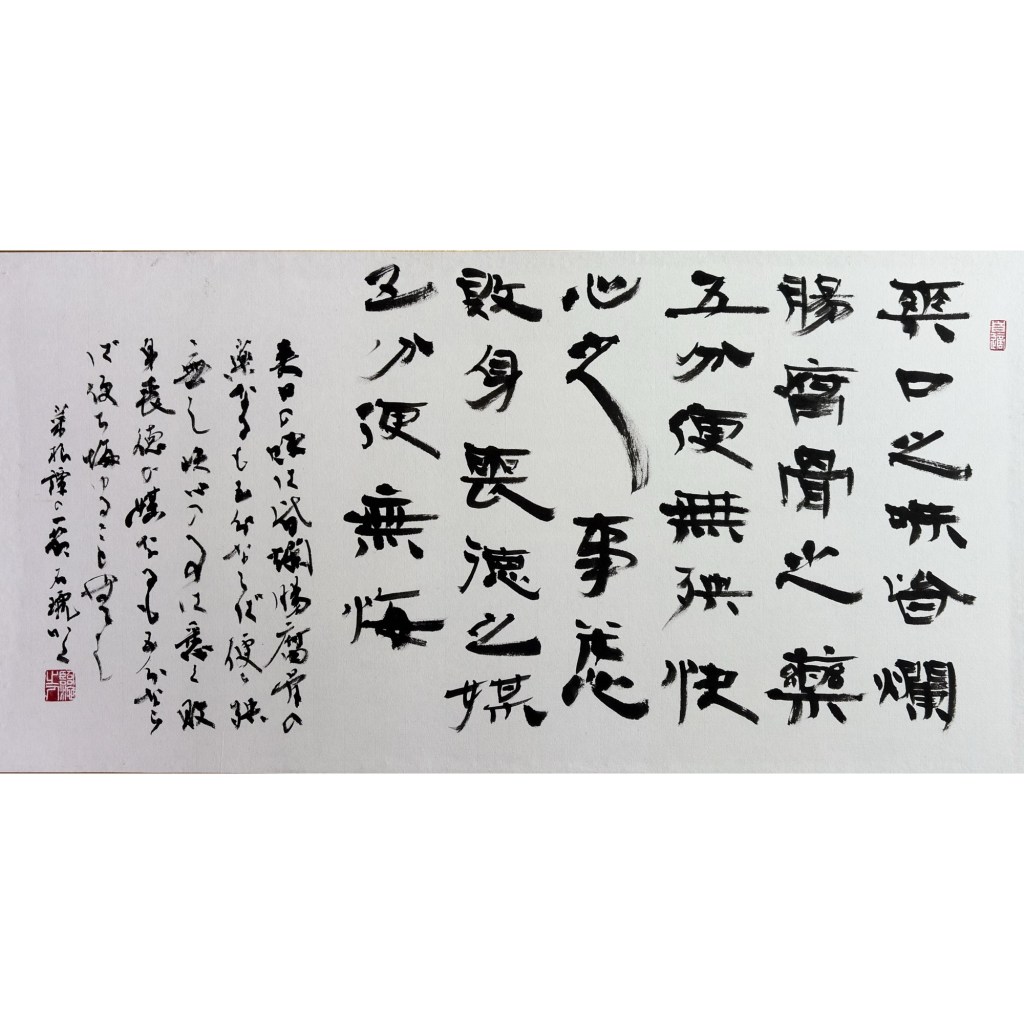 爽口之味皆爛
腸腐骨之藥
五分便無殃快
心之事悉
敗身喪徳之媒
五分便無悔
爽口の味は皆爛腸腐骨の
薬なるも五分ならば便ち殃
無し快心の事は悉く敗
身喪徳の媒なるも五分なら
ば便ち悔ゆること無し
菜根譚の一節 石